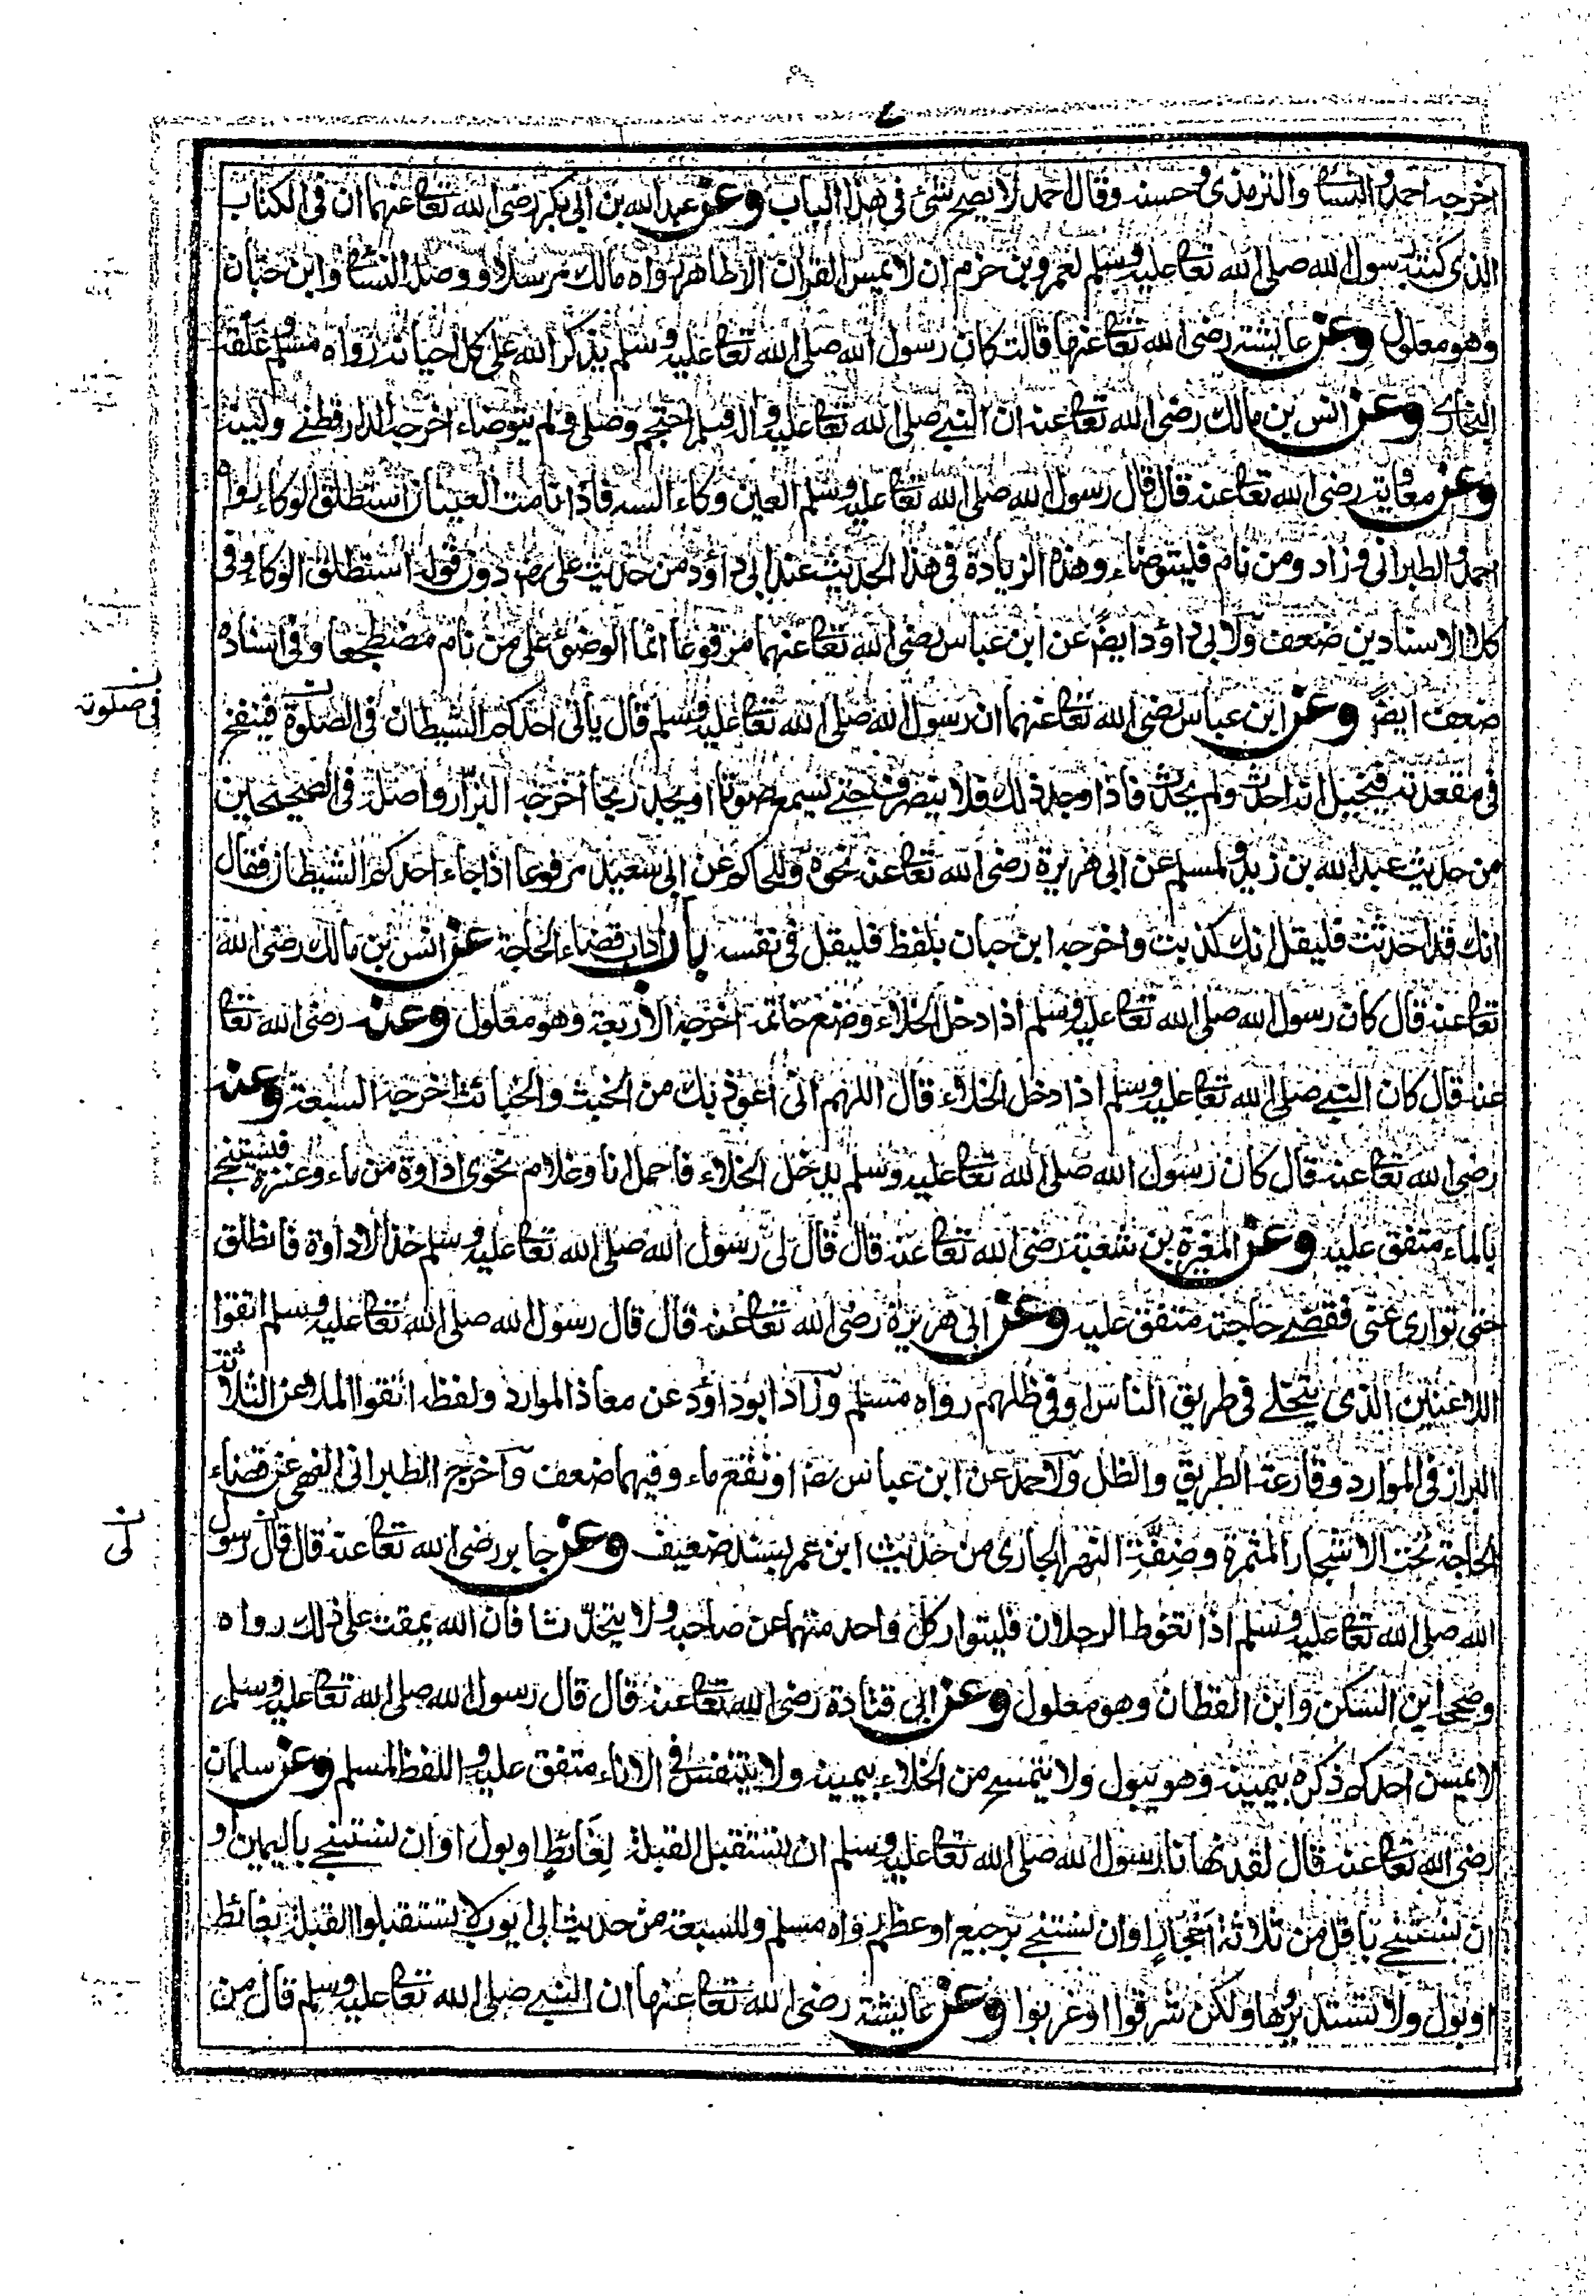 اخرجه احمد والنسائى والترمذى وحسنه وقال احمد لا يصح شئ فى هذا الباب وعن عبد الله بن ابى بكر رضى الله تعالى عنهما ان فى الكتاب
الذى كتبه رسول الله صلى الله تعالى عليه وسلم لعمرو بن حزم ان لا يمس القرآن الا طاهر رواه مالك مرسلا ووصله النسائى وابن حبان
وهو معلول وعن عايشة رضى الله تعالى عنها قالت كان رسول الله صلى الله تعالى عليه وسلم يذكر الله على كل احيانه رواه مسلم وعلقه
البخارى وعن انس بن مالك رضى الله تعالى عنه ان النبى صلى الله تعالى عليه واله وسلم احتجم وصلى ولم يتوضاء اخرجه الدارقطنى ولينه
وعن معاوية رضى الله تعالى عنه قال قال رسول الله صلى الله تعالى عليه وسلم العين وكاء السه فاذا نامت العينان استطلق الوكاء رواه
احمد والطبرانى وزاد ومن نام فليتوضاء وهذه الزيادة فى هذا الحديث عند ابى داؤد من حديث على رض دون قوله استطلق الوكاء وفى
كلا الاسنادين ضعف ولابى داؤد ايضً عن ابن عباس رضى الله تعالى عنهما مرفوعا انما الوضوء على من نام مضطجعا وفى اسناده
ضعف ايضً وعن ابن عباس رضى الله تعالى عنهما ان رسول الله صلى الله تعالى عليه وسلم قال يأتى احدكم الشيطان فى الصلوة فينفخ
فى صلوته
فى مقعدته فيخيل انه احدث ولم يحدث فاذا وجد ذلك فلا ينصرف حتى يسمع صوتا او يجد ريحا اخرجه البزار واصله فى الصحيحين
من حديث عبد الله بن زيد ولمسلم عن ابى هريرة رضى الله تعالى عنه نحوه وللحاكم عن ابى سعيد مرفوعا اذا جاء احدكم الشيطان فقال
انك قد احدثت فليقل انك كذبت واخرجه ابن حبان بلفظ فليقل فى نفسه باب اداب قضاء الحاجة عن انس بن مالك رضى الله
تعالى عنه قال كان رسول الله صلى الله تعالى عليه وسلم اذا دخل الخلاء وضع خاتمه اخرجه الاربعة وهو معلول وعنه رضى الله تعالى
عنه قال كان النبى صلى الله تعالى عليه وسلم اذا دخل الخلاء قال اللهم انى اعوذ بك من الخبث والخبائث اخرجه السبعة وعنه
رضى الله تعالى عنه قال كان رسول الله صلى الله تعالى عليه وسلم يدخل الخلاء فاحمل انا وغلام نحوى اداوة من ماء وعنزة فيستنجى
بالماء متفق عليه وعن المغيرة بن شعبة رضى الله تعالى عنه قال قال لى رسول الله صلى الله تعالى عليه وسلم خذ الاداوة فانطلق
حتى توارى عنى فقضى حاجته متفق عليه وعن ابى هريرة رضى الله تعالى عنه قال قال رسول الله صلى الله تعالى عليه وسلم اتقوا
اللاعنين الذى يتخلى فى طريق الناس او فى ظلهم رواه مسلم وزاد ابو داؤد عن معاذ الموارد ولفظه اتقوا الملاعن الثلاثة
البراز فى الموارد وقارعة الطريق والظل ولاحمد عن ابن عباس رضـ او نقع ماء وفيهما ضعف وآخرج الطبرانى النهى عن قضاء
الحاجة تحت الاشجار المثمرة وضِفَّةِ النهر الجارى من حديث ابن عمر بسند ضعيف وعن جابر رضى الله تعالى عنه قال قال رسول
الله صلى الله تعالى عليه وسلم اذا تغوط الرجلان فليتوار كل واحد منهما عن صاحبه ولا يتحدّثا فان الله يمقت على ذلك رواه
وصححه ابن السكن وابن القطان وهو معلول وعن ابى قتادة رضى الله تعالى عنه قال قال رسول الله صلى الله تعالى عليه وسلم
لا يمسن احدكم ذكره بيمينه وهو يبول ولا يتمسح من الخلاء بيمينه ولا يتنفس فى الاناء متفق عليه واللفظ لمسلم وعن سلمان
رضى الله تعالى عنه قال لقد نهانا رسول الله صلى الله تعالى عليه وسلم ان نستقبل القبلة لِغَائطٍ او بول او ان نستنجى باليمين او
ان نستنجى باقل من ثلاثة اَحْجارٍ او ان نستنجى برجيع او عظم رواه مسلم وللسبعة من حديث ابى ايوب لا تستقبلوا القبلة بغائط
او بول ولا تستدبروها ولكن شرقوا او غربوا وعن عايشة رضى الله تعالى عنها ان النبى صلى الله تعالى عليه وسلم قال من